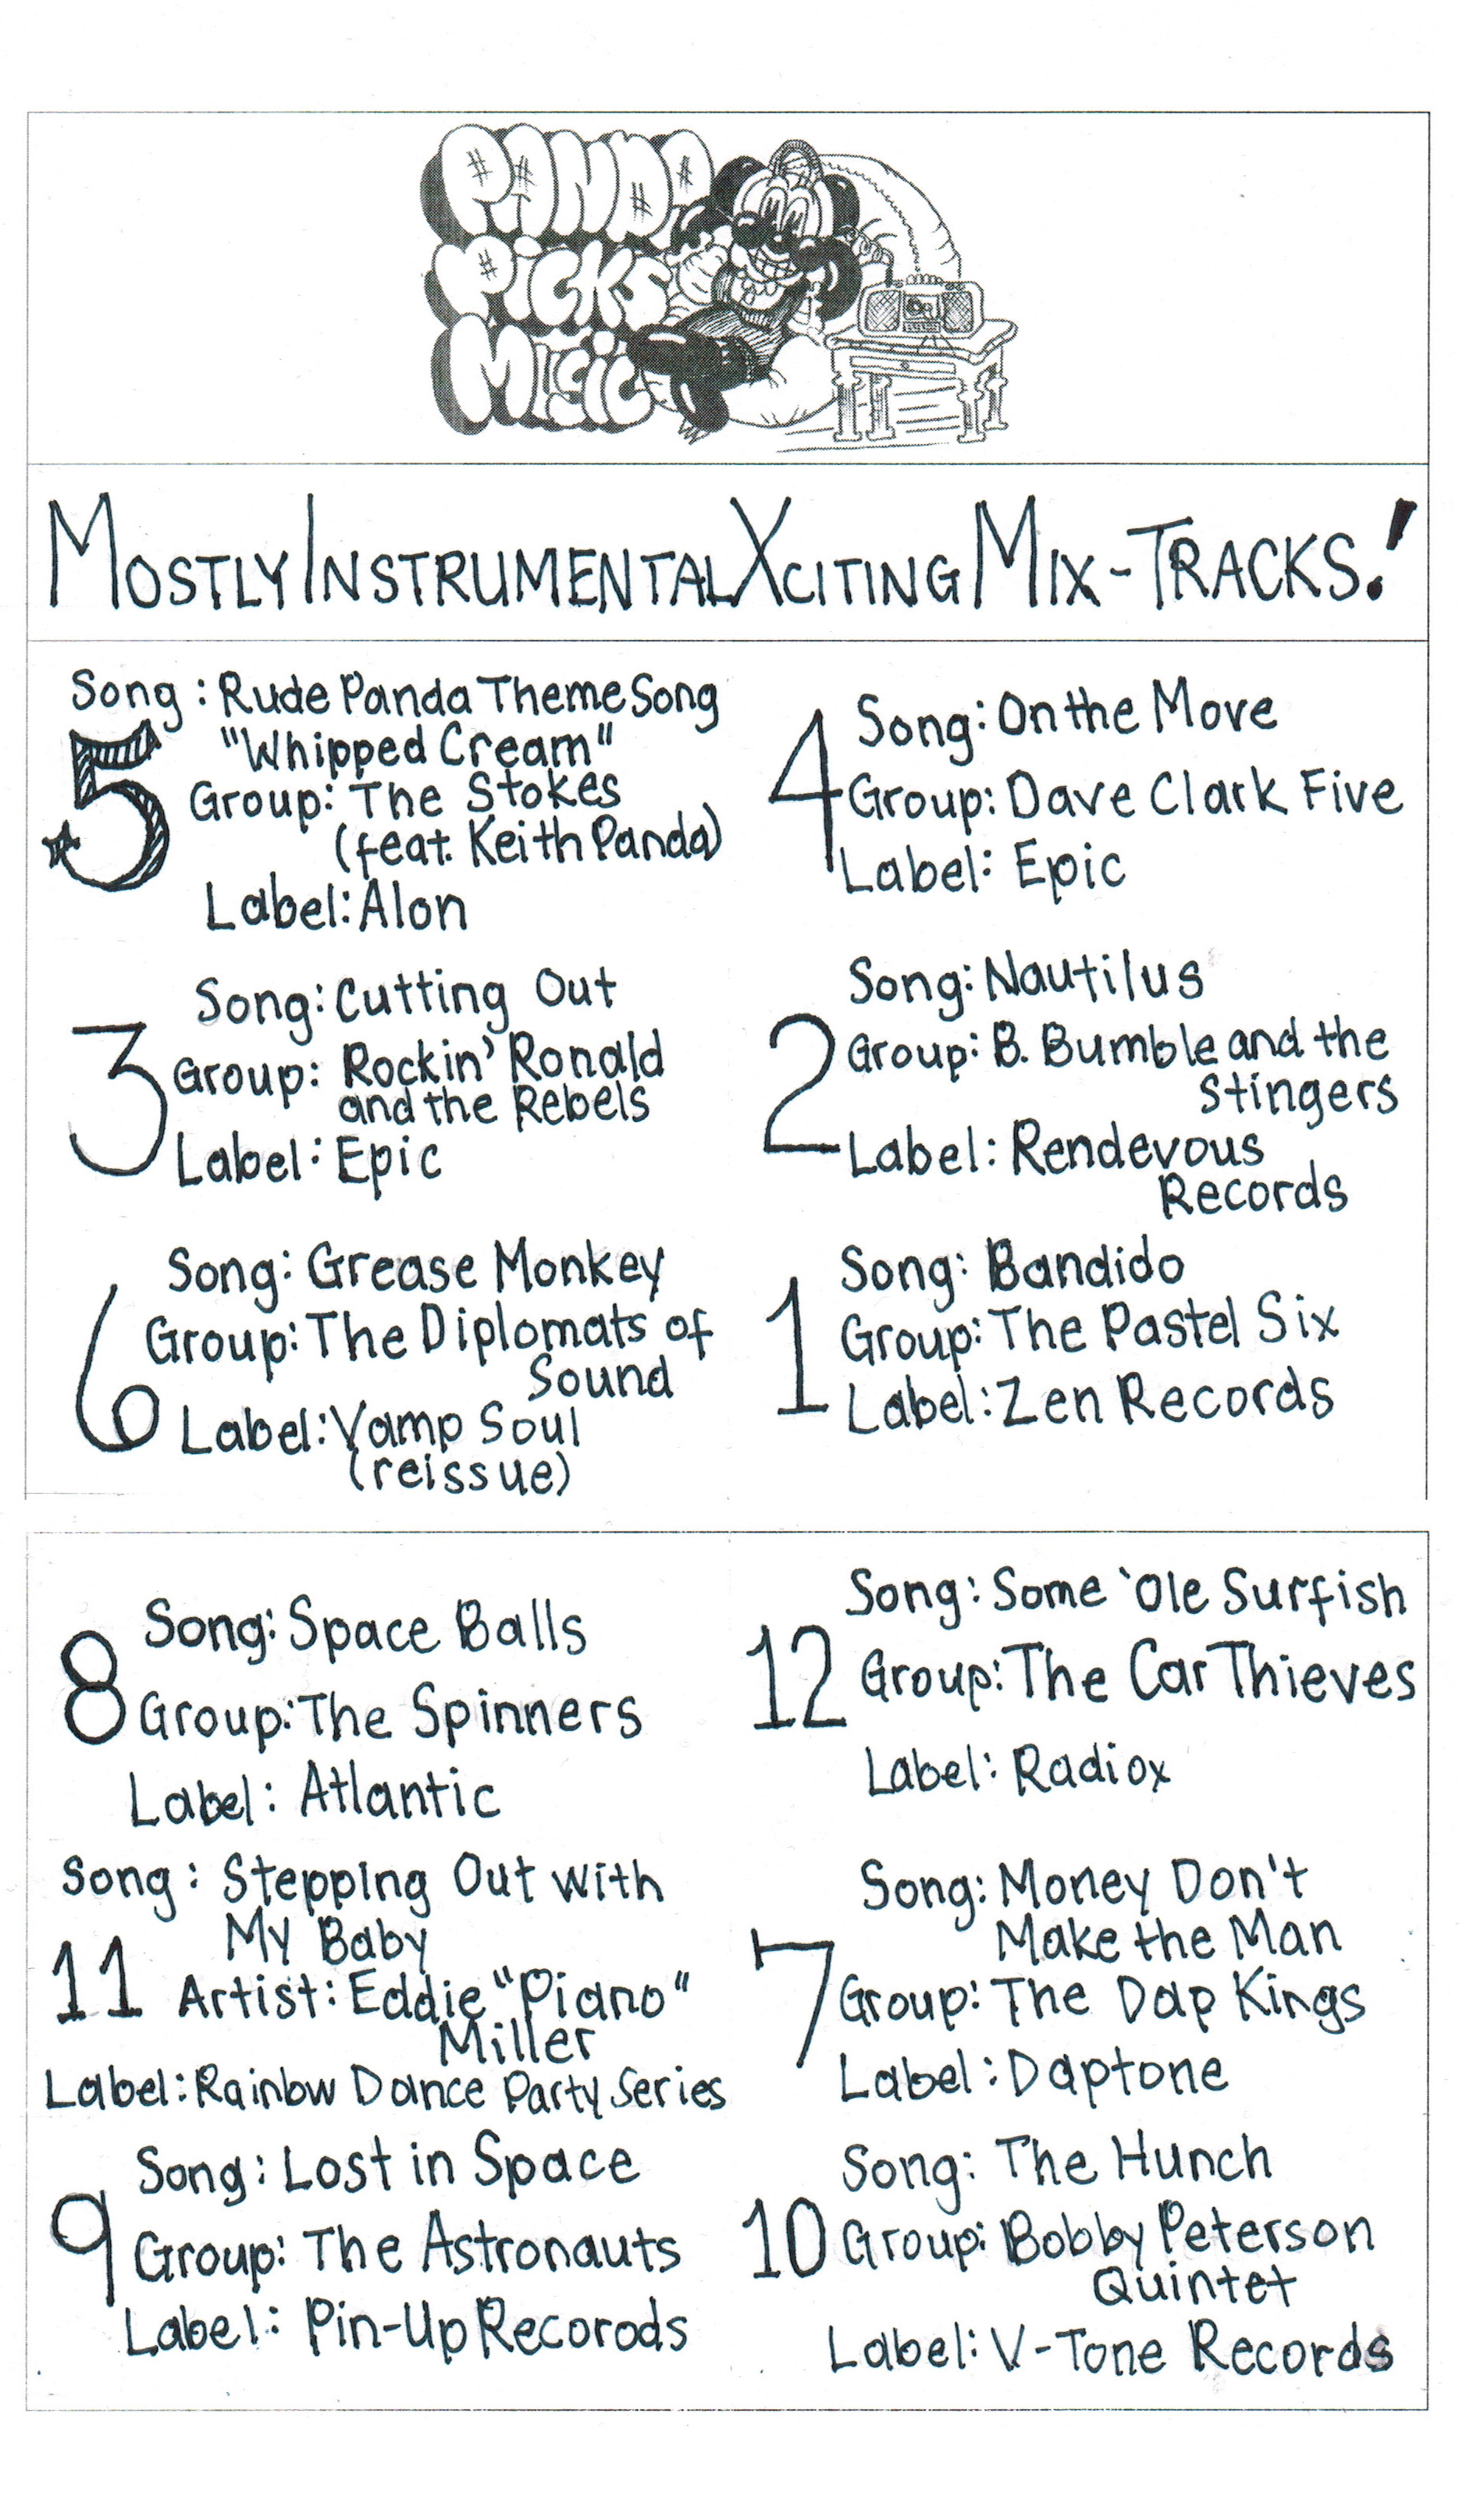 PANDA
PICKS
MUSIC
MOSTLY INSTRUMENTAL XCITING MIX-TRACKS!
Song: Rude Panda Theme Song
"Whipped Cream"
5
Group: The Stokes
(feat. Keith Panda)
Label: Alon
Song: On the Move
4
Group: Dave Clark Five
Label: Epic
Song: Cutting Out
3
Group: Rockin' Ronald
and the Rebels
Label: Epic
Song: Nautilus
2
Group: B. Bumble and the
Stingers
Label: Rendevous
Records
Song: Grease Monkey
6
Group: The Diplomats of
Sound
Label: Vamp Soul
(reissue)
Song: Bandido
1
Group: The Pastel Six
Label: Zen Records
Song: Space Balls
8
Group: The Spinners
Label: Atlantic
Song: Some 'Ole Surfish
12
Group: The Car Thieves
Label: Radiox
Song: Stepping Out with
My Baby
11
Artist: Eddie "Piano"
Miller
Label: Rainbw Dance Party Series
Song: Money Don't
Make the Man
7
Group: The Dap Kings
Label: Daptone
Song: Lost in Space
9
Group: The Astronauts
Label: Pin-Up Recorods
Song: The Hunch
10
Group: Bobby Peterson
Quintet
Label: V-Tone Records